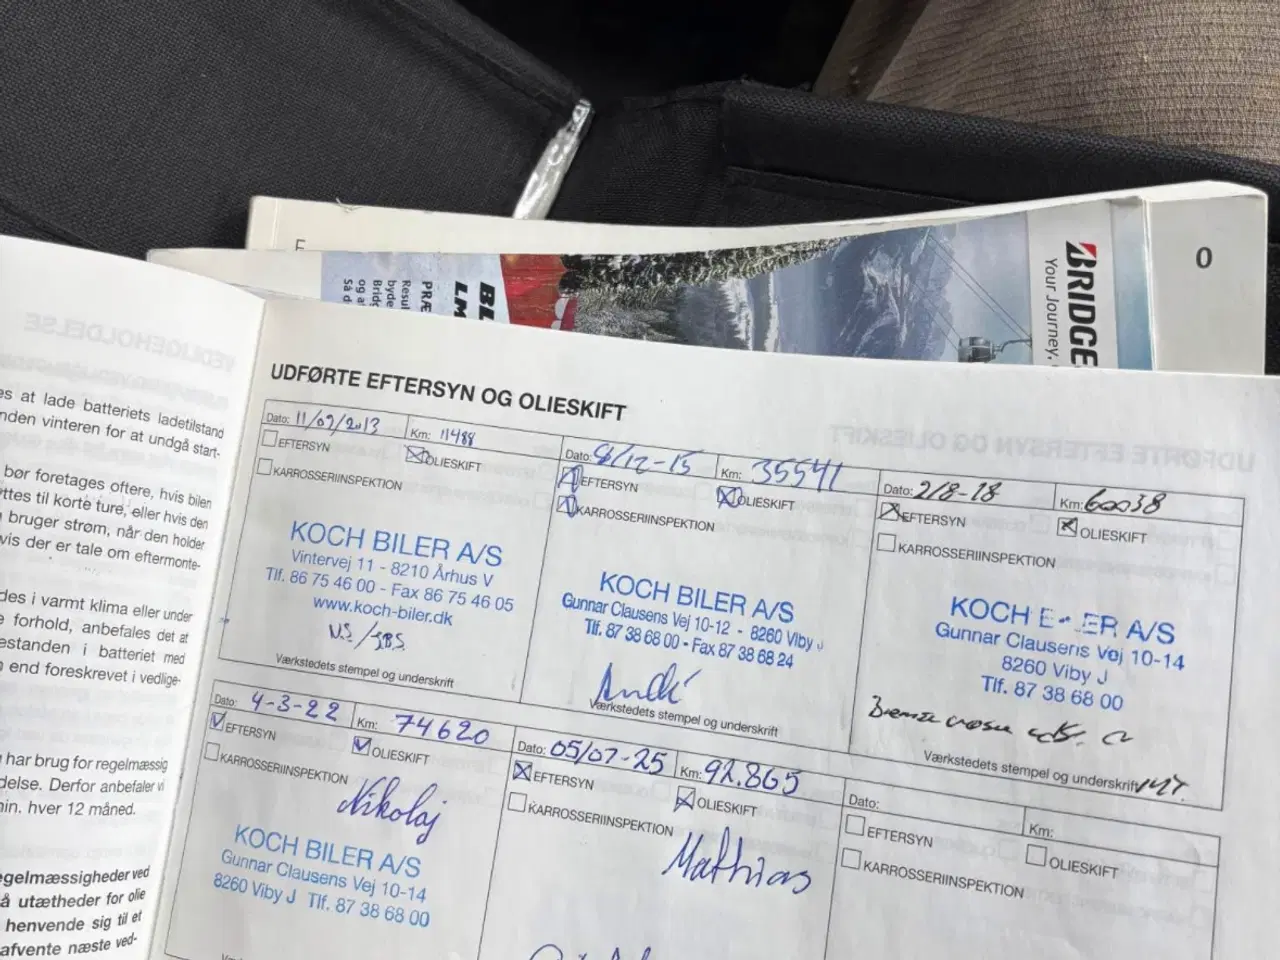 F
O
BRIDGE
Your Journey,
PRÆ
Resul
byde
Brid
og a
Så d
VEDLIGEHOLDELSE
es at lade batteriets ladetilstand
nden vinteren for at undgå start-
bør foretages oftere, hvis bilen
ttes til korte ture, eller hvis den
bruger strøm, når den holder
vis der er tale om eftermonte-
des i varmt klima eller under
forhold, anbefales det at
estanden i batteriet med
end foreskrevet i vedlige-
har brug for regelmæssig
delse. Derfor anbefaler vi
min. hver 12 måned.
egelmæssigheder ved
å utætheder for olie
henvende sig til et
afvente næste ved-
UDFØRTE EFTERSYN OG OLIESKIFT
UDFØRTE EFTERSYN OG OLIESKIFT
Dato: 11/09/2013 Km: 11488
EFTERSYN OLIESKIFT
KARROSSERIINSPEKTION
KOCH BILER A/S
Vintervej 11 - 8210 Århus V
Tlf. 86 75 46 00 - Fax 86 75 46 05
www.koch-biler.dk
Værkstedets stempel og underskrift
Dato: 8/12-15 Km: 35541
EFTERSYN OLIESKIFT
KARROSSERIINSPEKTION
KOCH BILER A/S
Gunnar Clausens Vej 10-12 - 8260 Viby J
Tlf. 87 38 68 00 - Fax 87 38 68 24
André
Værkstedets stempel og underskrift
Dato: 2/8-18 Km: 60038
EFTERSYN OLIESKIFT
KARROSSERIINSPEKTION
KOCH BILER A/S
Gunnar Clausens Vej 10-14
8260 Viby J
Tlf. 87 38 68 00
Værkstedets stempel og underskrift
Dato: 4-3-22 Km: 74620
EFTERSYN OLIESKIFT
KARROSSERIINSPEKTION
Nikolaj
KOCH BILER A/S
Gunnar Clausens Vej 10-14
8260 Viby J Tlf. 87 38 68 00
Dato: 05/07-25 Km: 92.865
EFTERSYN OLIESKIFT
KARROSSERIINSPEKTION
Mathias
Dato: Km:
EFTERSYN OLIESKIFT
KARROSSERIINSPEKTION